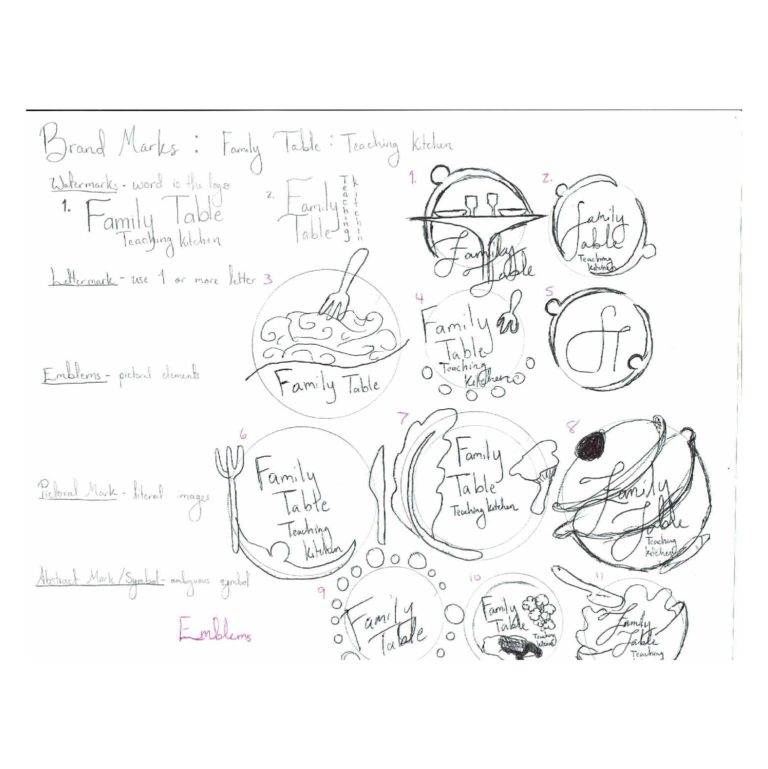 Brand Marks : Family Table : Teaching Kitchen
Watermarks - word is the logo
1.
Family Table
Teaching Kitchen
2.
Family
Table
Teaching
Kitchen
Lettermark - use 1 or more letter
Emblems - pictoral elements
Pictoral Mark - literal images
Abstract Mark/Symbol - ambguous symbol
Emblems
1.
Family
Table
2.
Family
Table
Teaching
Kitchen
3
Family Table
4
Family
Table
Teaching
Kitchen
5
6
Family
Table
Teaching
Kitchen
7
Family
Table
Teaching Kitchen
8
Family
Table
Teaching
Kitchen
9
Family
Table
10
Family
Table
Teaching
11
Family
Table
Teaching